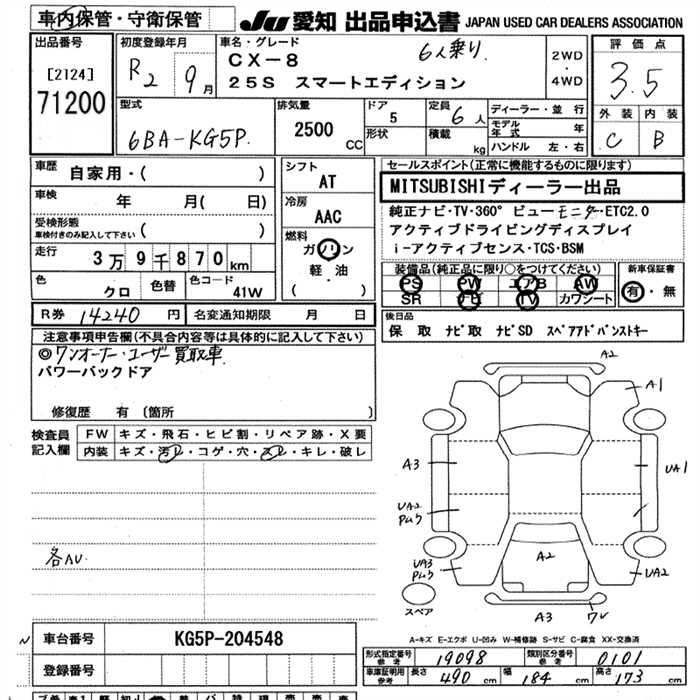 車内保管・守衛保管
JU 愛知 出品申込書 JAPAN USED CAR DEALERS ASSOCIATION
出品番号
[2124]
71200
初度登録年月
R2 9月
車名・グレード
CX-8 6人乗り
25S スマートエディション
2WD
・
4WD
評価点
3.5
外装 内装
C B
型式
6BA-KG5P
排気量
2500 CC
ドア
5
形状
定員
6人
積載
kg
ディーラー・並行
モデル年式 年
ハンドル 左・右
車歴
自家用・( )
車検 年 月( 日)
受検形態
車検付きのみ記入して下さい ( )
走行 3万9千870km
色 クロ 色替 色コード 41W
シフト
AT
冷房
AAC
燃料
ガソリン
軽・油
( )
セールスポイント(正常に機能するものに限ります)
MITSUBISHIディーラー出品
純正ナビ・TV・360°ビューモニター・ETC2.0
アクティブドライビングディスプレイ
i-アクティブセンス・TCS・BSM
装備品(純正品に限り○をつけてください)
PS PW エアB AW
SR ナビ TV カワシート
新車保証書
有・無
R券 14240円 名変通知期限 月 日
後日品
保 取 ナビ取 ナビSD スペアアドバンストキー
注意事項申告欄(不具合内容等は具体的に記入して下さい)
◎ワンオーナー・ユーザー買取車
パワーバックドア
修復歴 有 (箇所 )
検査員記入欄
FW キズ・飛石・ヒビ割・リペア跡・X要
内装 キズ・汚レ・コゲ・穴・スレ・キレ・破レ
各AU
A2
A1
A3
UA1
UA2
PUク
UA3
PUク
A2
UA2
スペア
A3 ワレ
A-キズ E-エクボ U-凹み W-補修跡 S-サビ C-腐食 XX-交換済
車台番号 KG5P-204548
登録番号
形式指定番号 参考 19098 類別区分番号 参考 0101
車庫証明用 参考 長さ 490 cm 幅 184 cm 高さ 173 cm